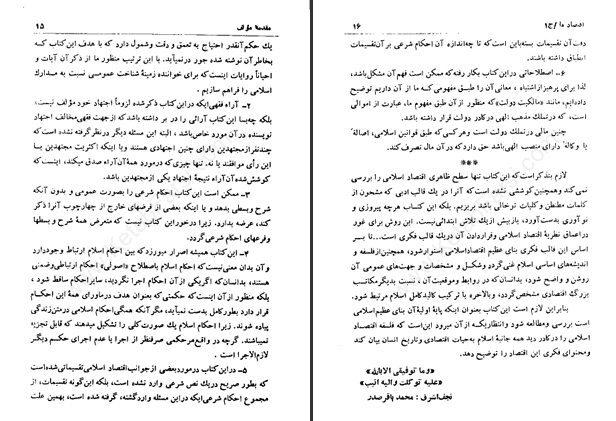 مقدمهٔ مؤلف ۱۵
یك حکم‌آنقدر احتیاج به تعمق و وقت وشمول دارد که با هدف این‌کتاب که
بخاطرآن نوشته شده جور درنمیآید. با این ترتیب منظور ما از ذکر آن آیات و
احیاناً روایات اینست‌که برای خواننده زمینهٔ شناخت عمومی نسبت به مدارك
اسلامی را فراهم سازیم .
۲- آراء فقهی‌ایکه دراین‌کتاب ذکرشده لزوماً اجتهاد خود مؤلف نیست،
بلکه چه‌بسا این‌کتاب آرائی را در بر داشته باشد که‌ازجهت فقهی‌مخالف اجتهاد
نویسنده درآن مورد خاص‌باشد ، البته این مسئله دیگر درنظرگرفته نشده است‌که
چندنفرازمجتهدین دارای چنین اجتهادی هستند ویا اینکه اکثریت مجتهدین با
این رأی موافقند یا نه. تنها چیزی‌که درمورد همهٔ آن‌آراء صدق میکند، اینست‌که
کوشش‌شده‌آن‌آراء نتیجهٔ اجتهاد یکی ازمجتهدین باشد .
۳- ممکن است این‌کتاب احکام شرعی را بصورت عمومی و بدون آنکه
شرح وبسطی بدهد و یا اینکه بعضی از فرضهای خارج از چهارچوب آنرا ذکر
کند، عرضه بدارد. زیرا درخوراین‌کتاب نیست که متعرض همهٔ شرح و بسطها
وفرعهای احکام شرعی گردد.
۴- این‌کتاب همیشه اصرار میورزدکه بین احکام اسلام ارتباط وجوددارد
وآن بدان معنی‌نیست‌که احکام اسلام باصطلاح «اصولی» احکام ارتباطی‌وضمنی
هستند، بدانسان‌که اگریکی ازآن احکام اجرا نگردید، سایراحکام ساقط شود ،
بلکه منظور ازآن اینست‌که حکمتی‌که بعنوان هدف درماورای همهٔ این احکام
قرار دارد بطورکامل بدست نمیآید، مگرآنکه همگی‌احکام اسلامی درمتن‌زندگی
پیاده شوند. زیرا احکام اسلام یك صورت‌کلی را تشکیل میدهند که قابل تجزیه
نمیباشند. گرچه در واقع‌هرحکمی صرفنظر از اجرا یا عدم اجرای حکم دیگر
لازم‌الاجرا است .
۵- دراین‌کتاب درموردبعضی ازجوانب‌اقتصاد اسلامی‌تقسیماتی‌شده‌است
که بطور صریح دریك نص شرعی وارد نشده است، بلکه این‌گونه تقسیمات، از
مجموع احکام شرعی‌ایکه دراین مسئله واردگشته، گرفته شده است، بهمین علت
۱۶ اقتصاد ما /ج۱
آن تقسیمات بسته‌باین است‌که تاچه‌اندازه آن احکام شرعی برآن‌تقسیمات
انطباق داشته باشند.
۶- اصطلاحاتی دراین‌کتاب بکار رفته‌که ممکن است فهم آن‌مشکل‌باشد،
لذا برای پرهیزازاشتباه ، معانی آن‌را طبق مفهومی که ما از آن داریم توضیح
داده‌ایم، مانند «مالکیت دولت» منظور از آن طبق مفهوم ما، عبارت از اموالی
است، که درتملك مذهب الهی درکادر دولت قرار داشته باشد.
چنین مالی درتملك دولت است وهرکسی‌که طبق قوانین اسلامی، اصالهً
یا وکالهً دارای منصب الهی‌باشد حق داردکه درآن مال تصرف‌کند.
***
لازم بتذکراست‌که این‌کتاب تنها سطح ظاهری اقتصاد اسلامی را بررسی
نمی‌کند وهمچنین کوششی نشده است‌که آنرا در یك قالب ادبی که مشحون از
کلمات مطنطن وکلیات توخالی باشد بریزیم. بلکه این‌کتاب هرچه پیروزی و
نوآوری بدست‌آورد، بازبیش ازیك تلاش ابتدائی‌نیست. این روش برای غور
دراعماق نظریهٔ اقتصاد اسلامی وقراردادن آن دریك قالب فکری است...تا بر
اساس این قالب فکری بنای عظیم اقتصاداسلامی استوارشود، همچنین‌ازفلسفه و
اندیشه‌های اساسی اسلام غنی‌گردد وشکل و مشخصات و جهت‌های عمومی آن
روشن و واضح شود، بدانسان‌که در روابط وموقعیت آن ، نسبت بدیگرمکاتب
بزرگ اقتصادی مشخص‌گردد، وبالاخره با ترکیب کالبدکامل اسلام مرتبط شود.
بنابراین لازم است این‌کتاب بعنوان اینکه پایهٔ اولیهٔ‌آن بنای عظیم‌اسلامی
است بررسی ومطالعه شود وانتظاریکه از آن میرود این‌است که فلسفه اقتصاد
اسلامی را درکادر دید همه جانبهٔ اسلام به‌حیات اقتصادی وتاریخ انسان بیان کند
ومحتوای فکری این اقتصاد را توضیح دهد.
«وما توفیقی الابالله»
«علیه توکلت والیه انیب»
نجف‌اشرف : محمد باقرصدر